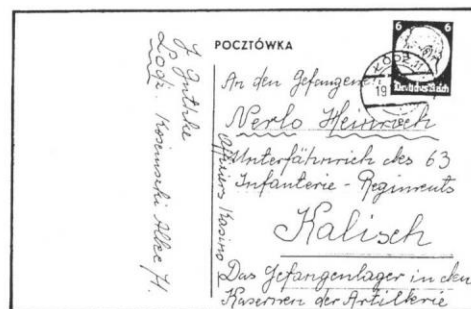 J Guthke
Lodz. Kosciuszki Allee 71.
POCZTÓWKA
6 6
Deutsches Reich
ŁÓDŹ
19
An den Gefangenen
Nerlo Heinrich
Unterfähnrich des 63
Infanterie - Regiments
Offiziers Kasino
Kalisch
Das Gefangenlager in den
Kasernen der Artillerie